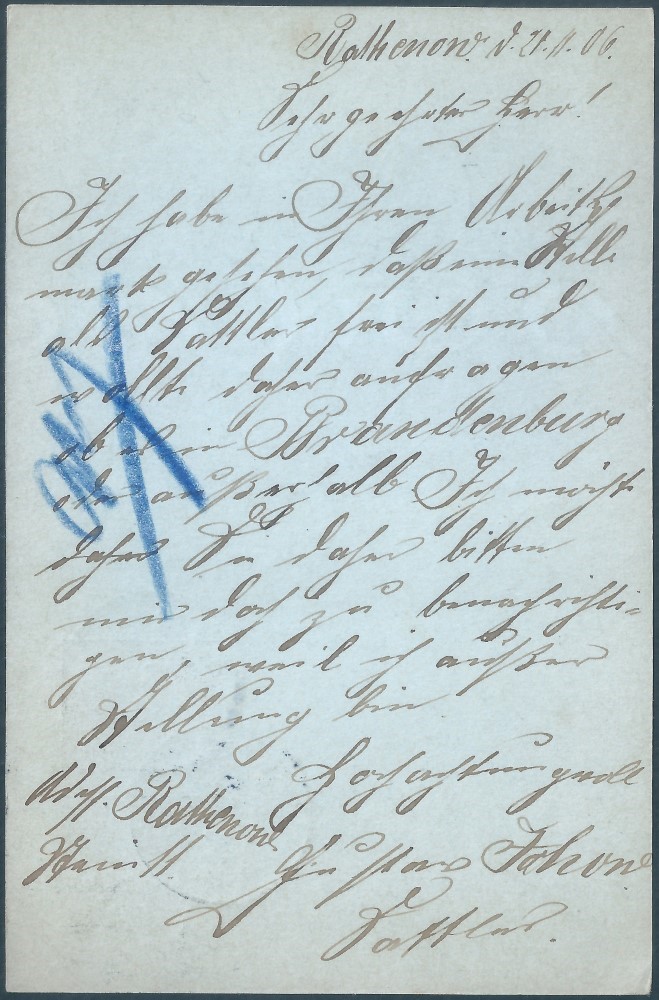 Rathenow d. 21.11.06.
Sehr geehrter Herr!
Ich habe in Ihren Arbeits
markt gesehen, daß eine Stelle
als Sattler frei ist und
wollte daher anfragen
ob es in Brandenburg
oder außerhalb Ich möchte
daher Sie daher bitten
mir doch zu benachrichti=
gen, weil ich außer
Stellung bin
Hochachtungsvoll
Adress. Rathenow
Gustav
Sattler.